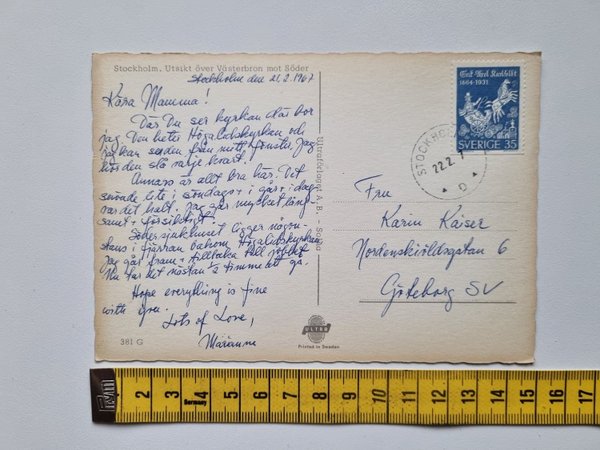 Stockholm. Utsikt över Västerbron mot Söder
Stockholm den 21.2.1967
Kära Mamma!
Där Du ser kyrkan där bor
jag. Den heter Högalidskyrkan och
jag kan se den från mitt fönster. Jag
hör den slå varje kvart!
Annars är allt bra här. Det
snöade lite i söndags + i går, i dag
var det halt. Jag går mycket lång-
samt + försiktigt.
Södersjukhuset ligger någon-
stans i fjärran bakom Högalidskyrkan
jag går fram + tillbaka till jobbet
Nu tar det nästan ½ timme att gå.
Hope everything is fine
with you.
Lots of Love,
Marianne
381 G
Ultraförlaget A.B. - Solna
ULTRA
Printed in Sweden
Gert Karl Karlfeldt
1864-1931
SVERIGE 35
STOCKHOLM
22.2.
D
Fru
Karin Kaiser
Nordenskiöldsgatan 6
Göteborg SV
2 3 4 Germany 5 6 7 8 9 10 11 12 13 14 15 16 17